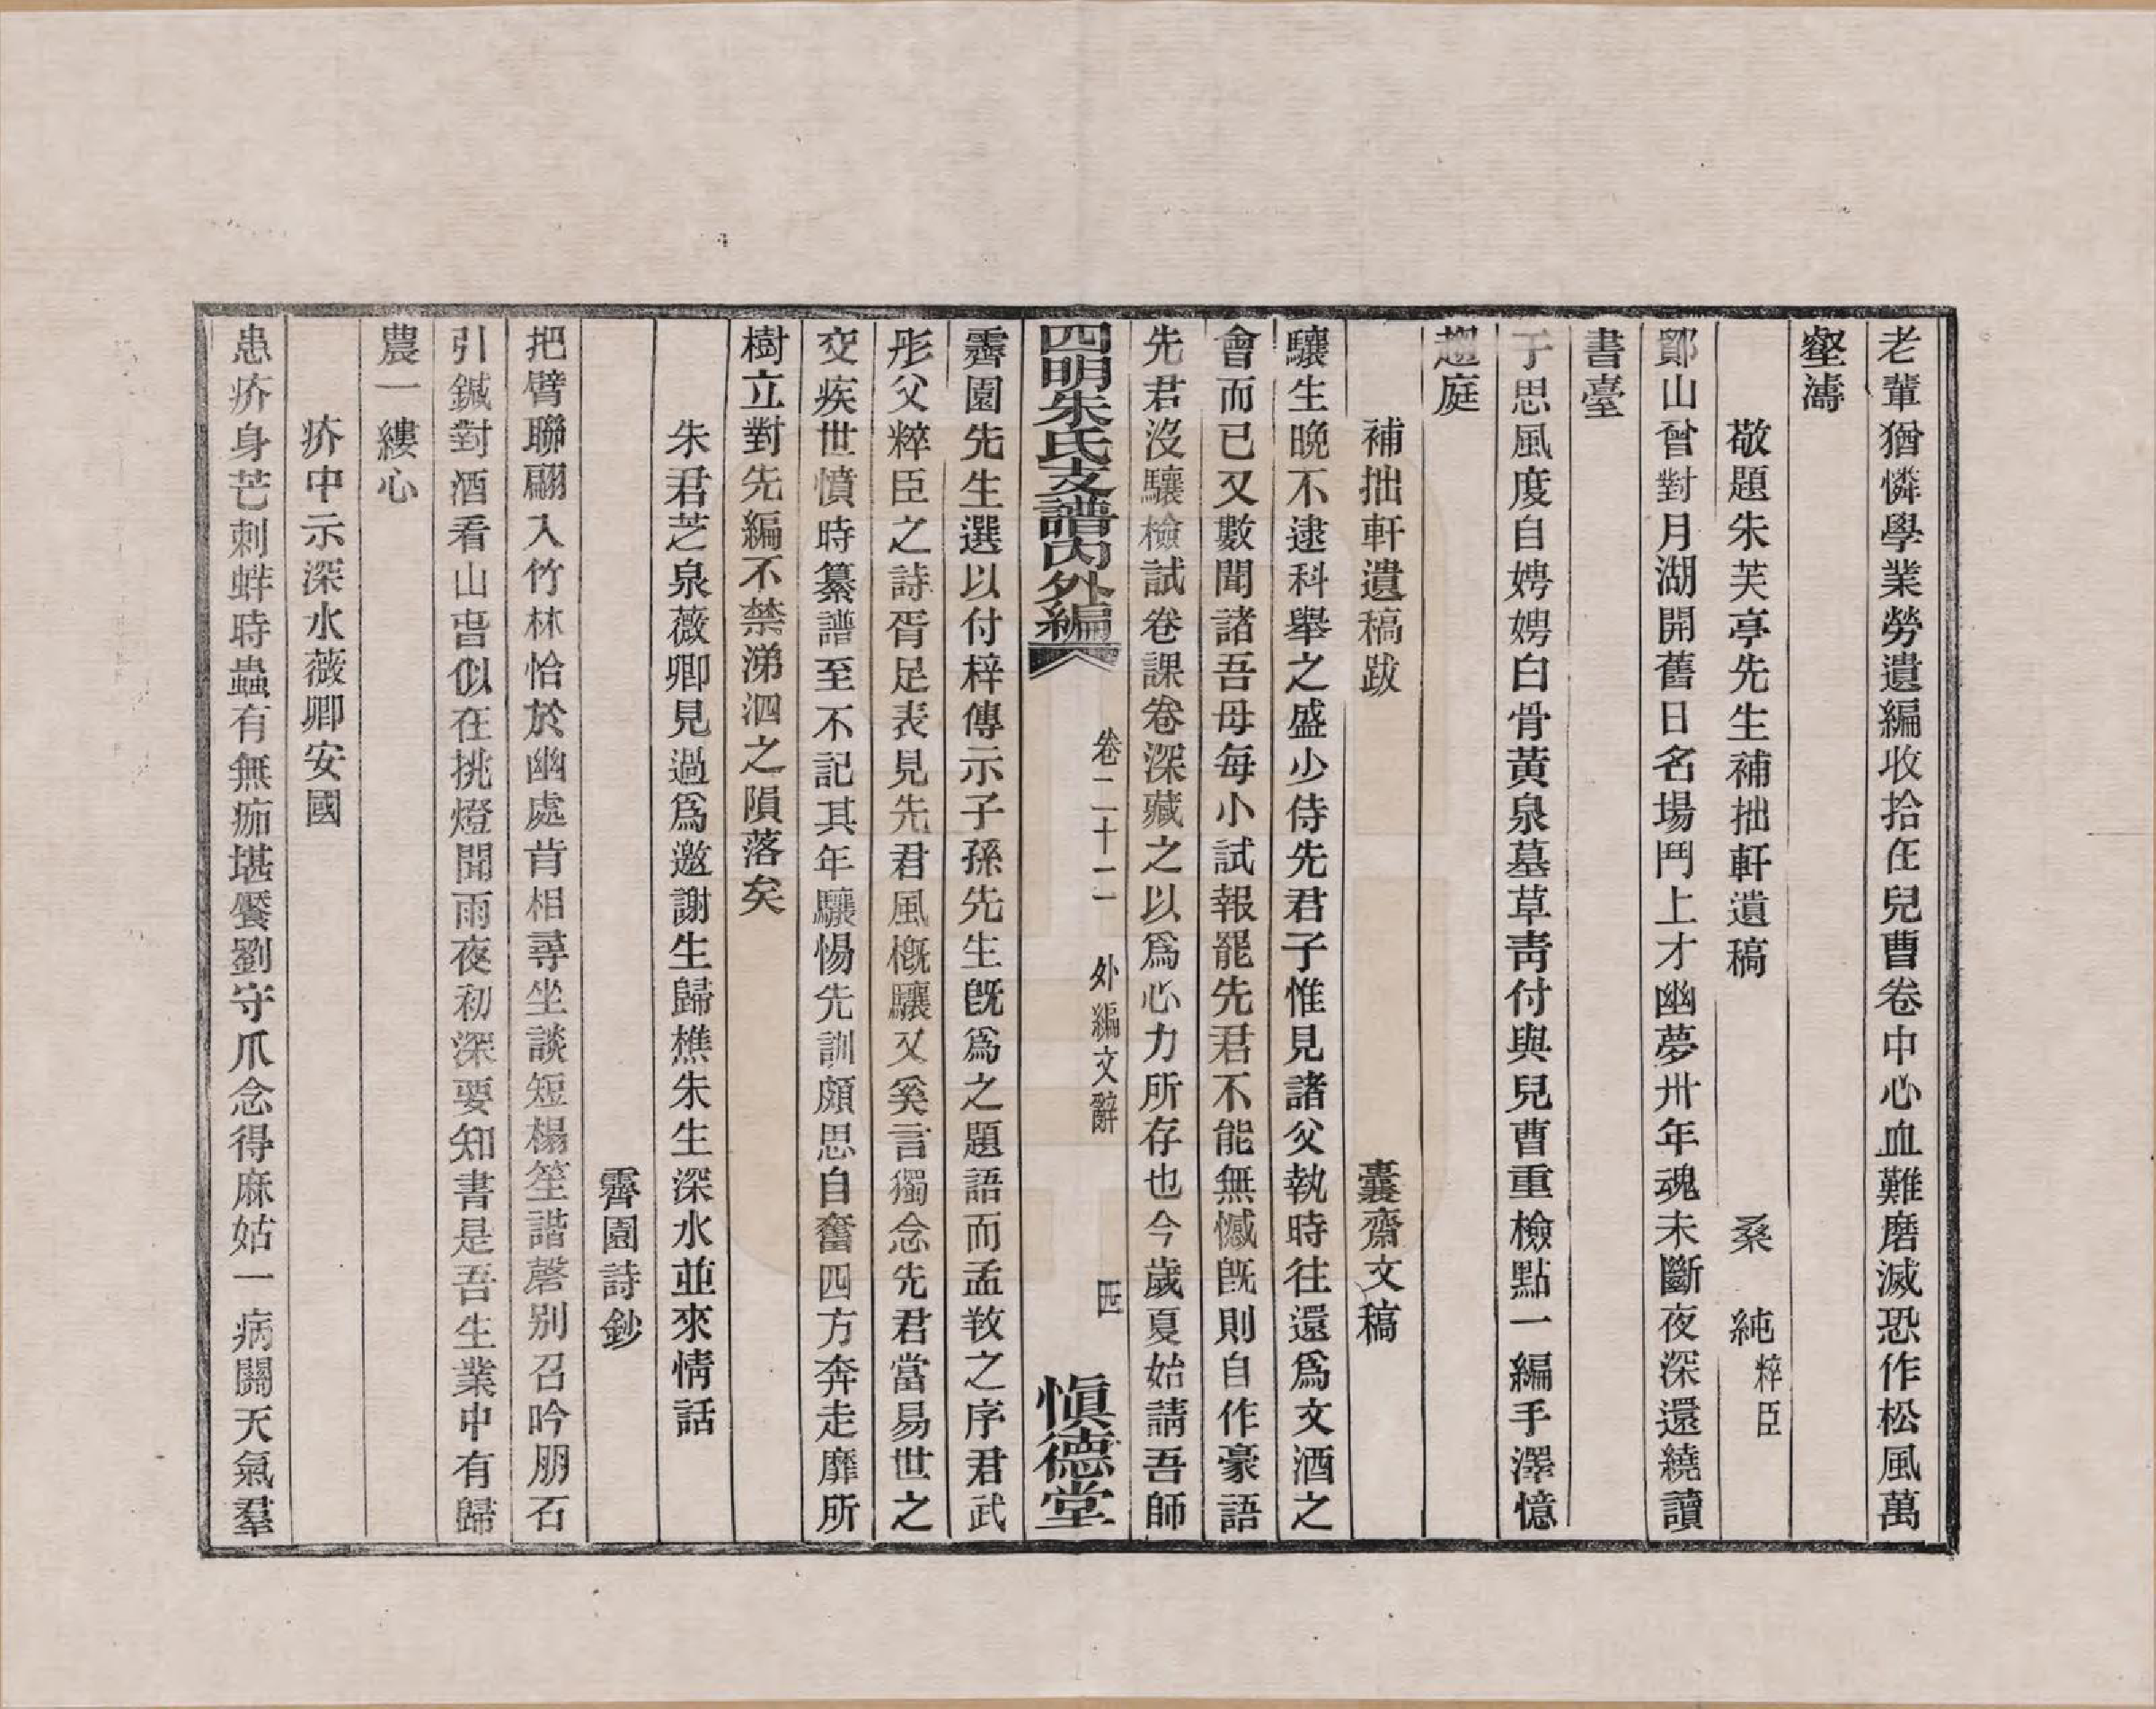 老輩猶憐學業勞遺編收拾在兒曹卷中心血難磨滅恐作松風萬
壑濤
敬題朱芙亭先生補拙軒遺稿 桑 純粹臣
鄮山曾對月湖開舊日名場鬥上才幽夢卅年魂未斷夜深還繞讀
書臺
于思風度自娉娉白骨黃泉墓草靑付與兒曹重檢點一編手澤憶
趨庭
補拙軒遺稿跋 囊齋文稿
驤生晚不逮科舉之盛少侍先君子惟見諸父執時往還爲文酒之
會而已又數聞諸吾母每小試報罷先君不能無憾旣則自作豪語
先君沒驤檢試卷課卷深藏之以爲心力所存也今歲夏始請吾師
四明朱氏支譜內外編 卷二十二 外編文辭 四 愼德堂
霽園先生選以付梓傳示子孫先生旣爲之題語而孟敎之序君武
彤父粹臣之詩胥足表見先君風槪驤又奚言獨念先君當易世之
交疾世憤時纂譜至不記其年驤惕先訓頗思自奮四方奔走靡所
樹立對先編不禁涕泗之隕落矣
朱君芝泉薇卿見過爲邀謝生歸樵朱生深水並來情話
霽園詩鈔
把臂聯翩入竹林恰於幽處肯相尋坐談短榻笙諧磬别召吟朋石
引鍼對酒看山曺似在挑燈聞雨夜初深要知書是吾生業中有歸
農一縷心
疥中示深水薇卿安國
患疥身芒刺蛘時蟲有無痂堪餮劉守爪念得麻姑一病關天氣羣